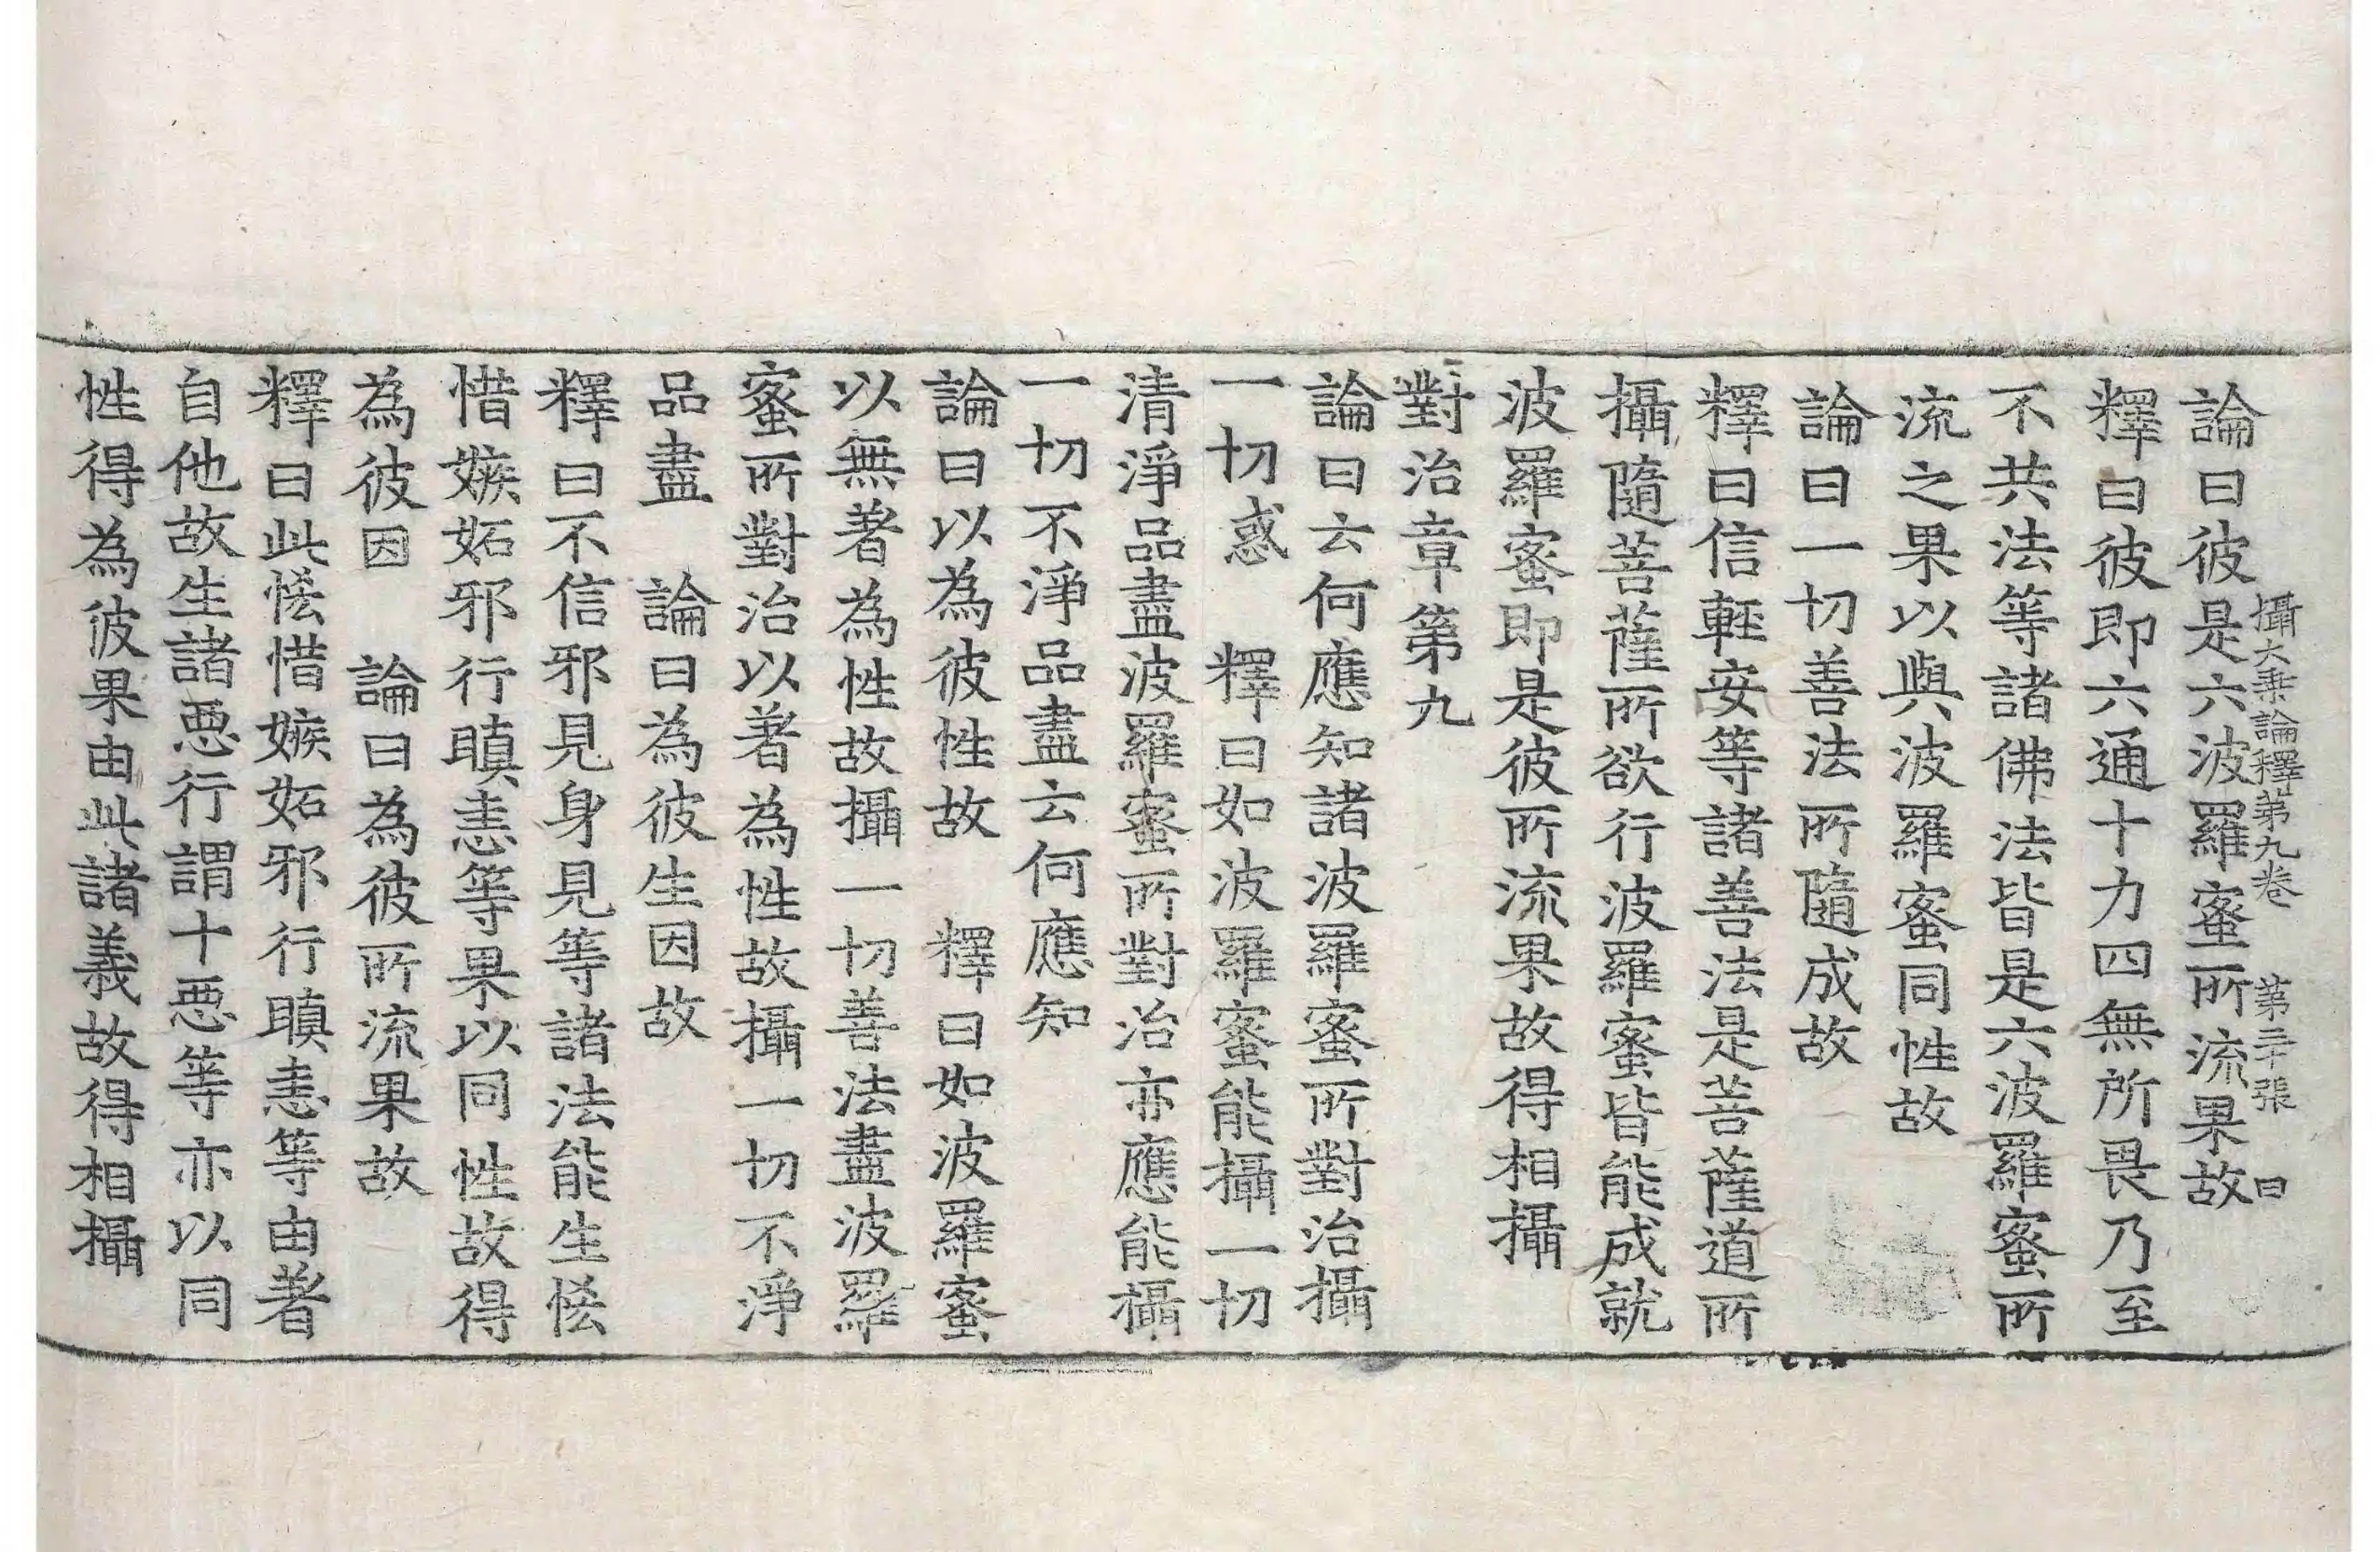 攝大乗論釋第九卷　第二十張　曰
論曰彼是六波羅蜜所流果故
釋曰彼即六通十力四無所畏乃至
不共法等諸佛法皆是六波羅蜜所
流之果以與波羅蜜同性故
論曰一切善法所隨成故
釋曰信輕安等諸善法是菩薩道所
攝隨菩薩所欲行波羅蜜皆能成就
波羅蜜即是彼所流果故得相攝
對治章第九
論曰云何應知諸波羅蜜所對治攝
一切惑　釋曰如波羅蜜能攝一切
清淨品盡波羅蜜所對治亦應能攝
一切不淨品盡云何應知
論曰以為彼性故　釋曰如波羅蜜
以無著為性故攝一切善法盡波羅
蜜所對治以著為性故攝一切不淨
品盡　論曰為彼生因故
釋曰不信邪見身見等諸法能生恡
惜嫉妬邪行瞋恚等果以同性故得
為彼因　論曰為彼所流果故
釋曰此恡惜嫉妬邪行瞋恚等由著
自他故生諸惡行謂十惡等亦以同
性得為彼果由此諸義故得相攝